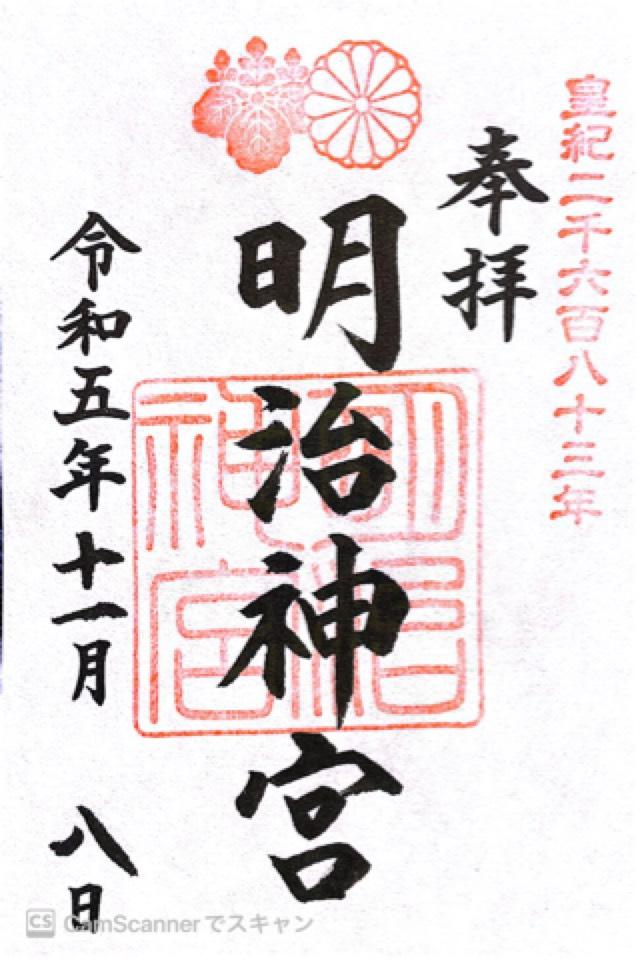 皇紀二千六百八十三年
奉拝
明治神宮
明治神宮
令和五年十一月 八日
CS CamScannerでスキャン